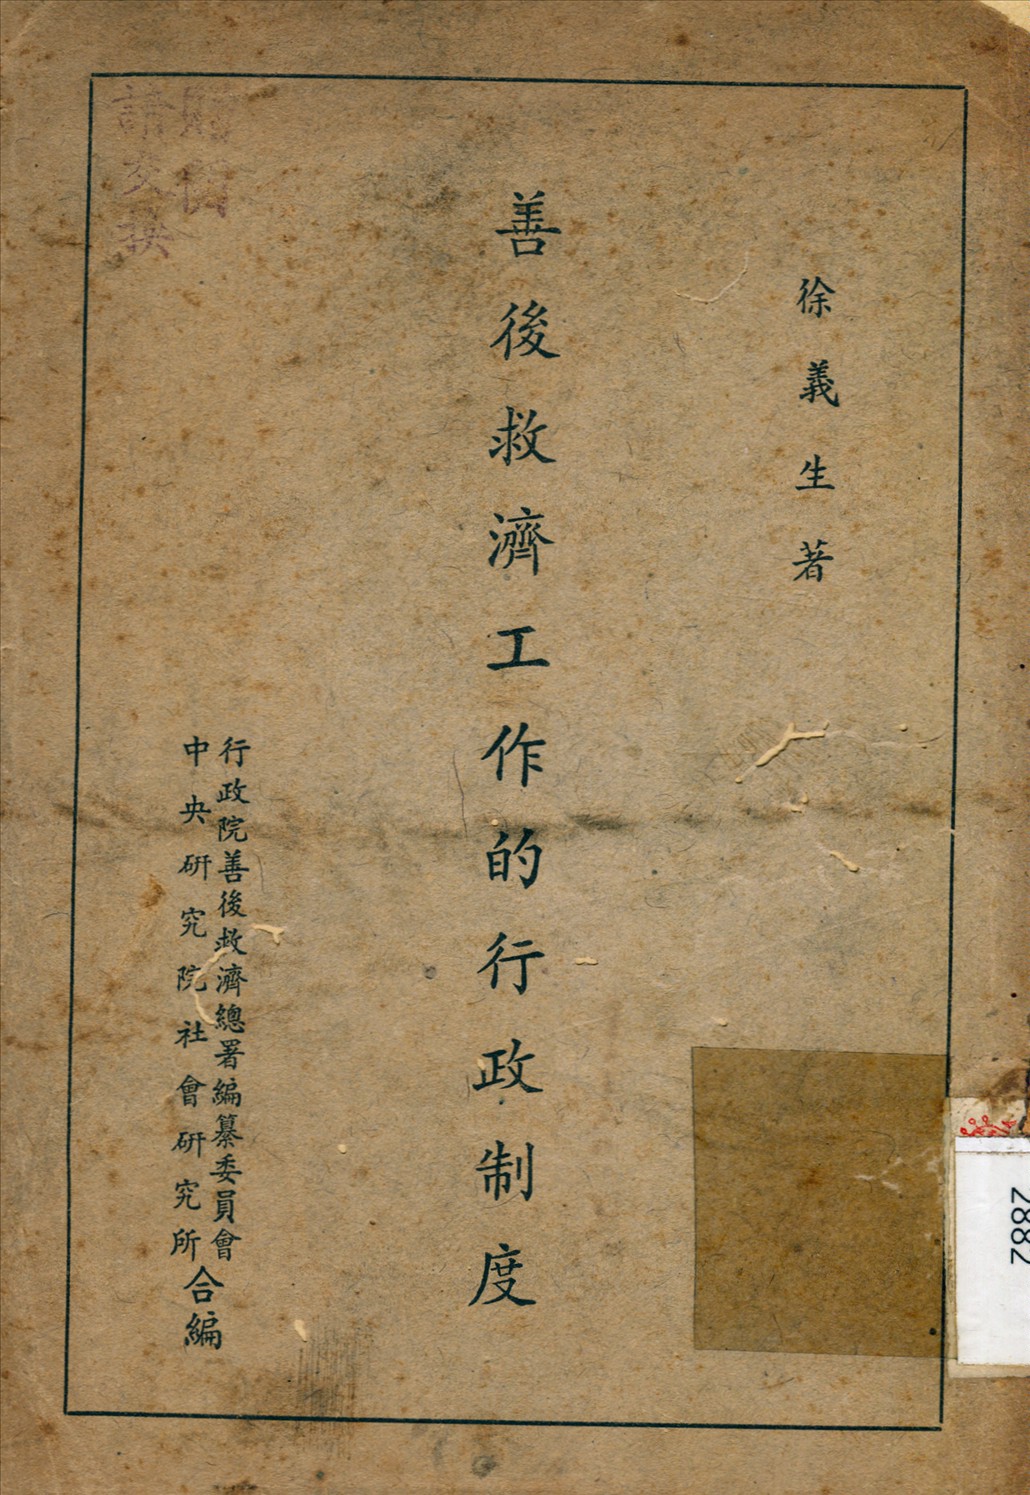 徐義生著
善後救濟工作的行政制度
行政院善後救濟總署編纂委員會
中央研究院社會研究所
合編
請交換
2882